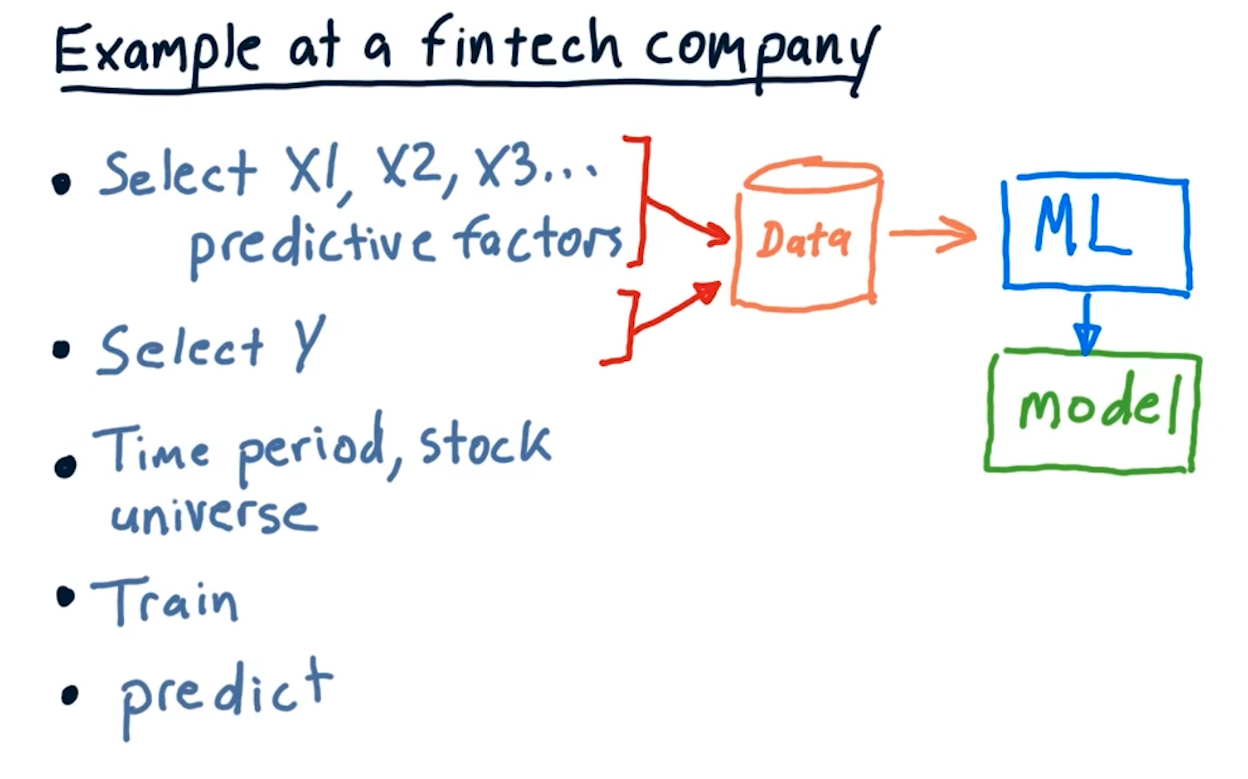 Example at a fintech company
• Select X1, X2, X3...
predictive factors
• Select Y
• Time period, stock
universe
• Train
• predict
Data
ML
model